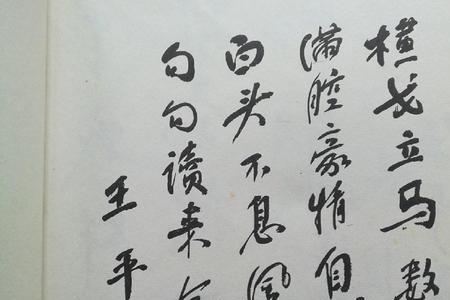 横戈立马数
满腔豪情自
白头不息
句句读来
王平